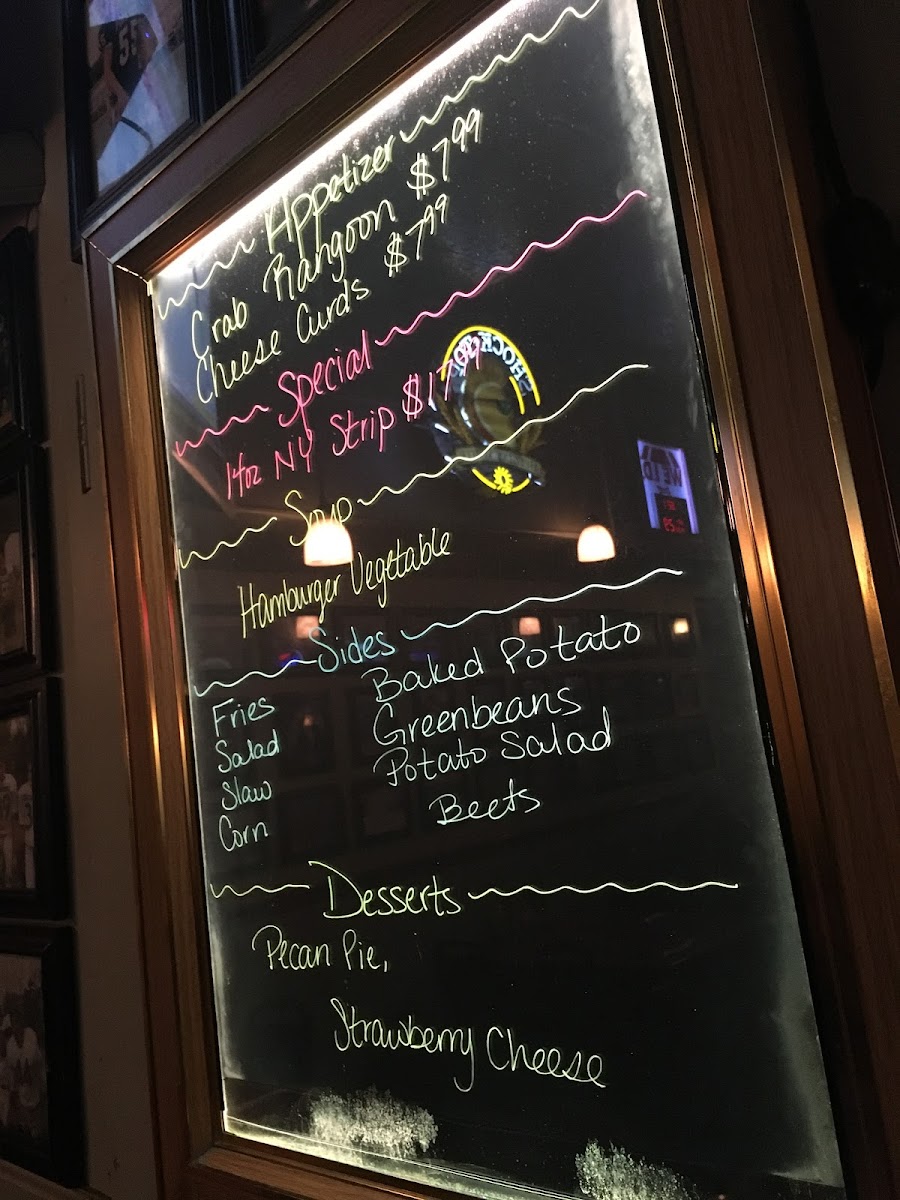 55
Appetizer
Crab Rangoon $7.99
Cheese Curds $7.99
Special
14oz NY Strip $17.99
Soup
Hamburger Vegetable
Sides
Fries
Salad
Slaw
Corn
Baked Potato
Greenbeans
Potato Salad
Beets
Desserts
Pecan Pie,
Strawberry Cheese
SHOCK TOP